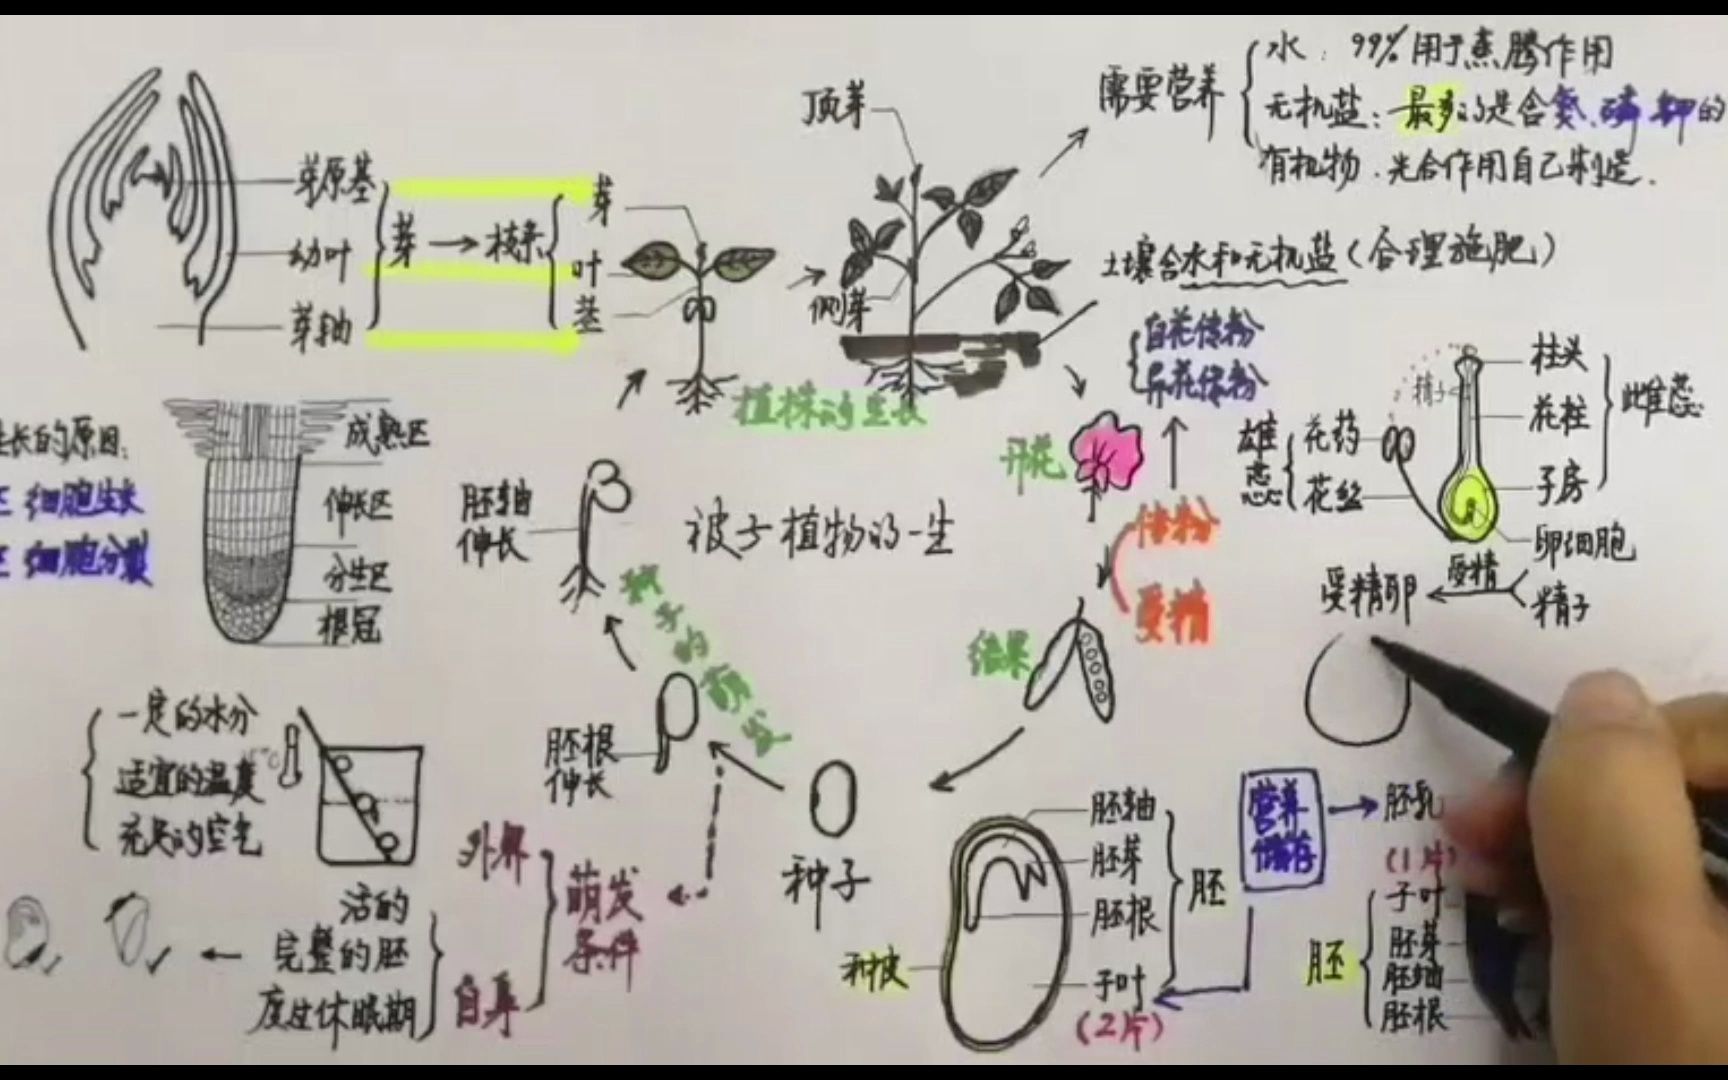 水：99%用于蒸腾作用
需要营养
无机盐：最多的是含氮、磷、钾的
有机物：光合作用自己制造.
顶芽
侧芽
土壤含水和无机盐(合理施肥)
芽原基
幼叶
芽轴
芽→枝条
芽
叶
茎
植株的生长
自花传粉
异花传粉
开花
传粉
受精
结果
柱头
花柱
子房
卵细胞
雌蕊
精子
雄蕊
花药
花丝
受精
精子
受精卵
生长的原因:
区 细胞生长
区 细胞分裂
成熟区
伸长区
分生区
根冠
胚轴
伸长
被子植物的一生
种子的萌发
胚根
伸长
种子
一定的水分
适宜的温度
充足的空气
℃
外界
自身
萌发
条件
活的
完整的胚
度过休眠期
种皮
胚轴
胚芽
胚根
子叶
(2片)
胚
营养
储存
胚乳
(1片)
子叶
胚芽
胚轴
胚根
胚